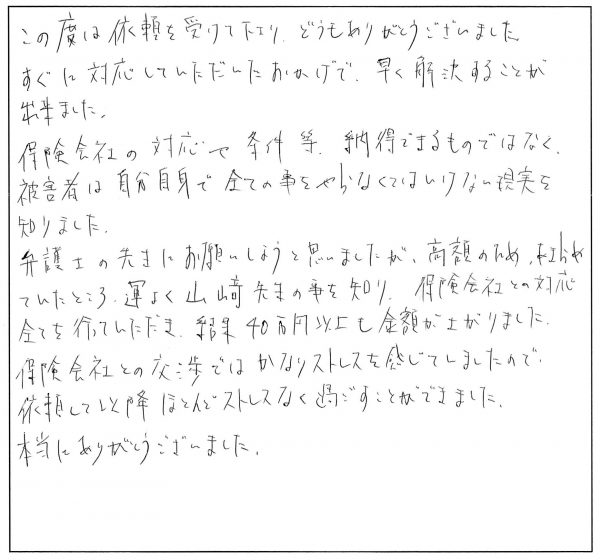 この度は依頼を受けて下さり、どうもありがとうございました。
すぐに対応していただいたおかげで、早く解決することが
出来ました。
保険会社の対応や条件等、納得できるものではなく、
被害者は自分自身で全ての事をやらなくてはいけない現実を
知りました。
弁護士の先生にお願いしようと思いましたが、高額のため、あきらめ
ていたところ、運よく山﨑先生の事を知り、保険会社との対応
全てを行っていただき、結果40万円以上も金額が上がりました。
保険会社との交渉ではかなりストレスを感じてしましたので、
依頼して以降ほとんどストレスなく過ごすことができました。
本当にありがとうございました。